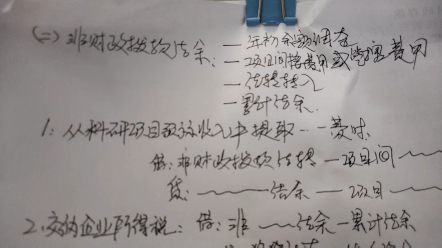 (二) 非财政拨款结余: — 年初余额调整
— 项目间接费用或管理费用
— 结转转入
— 累计结余
1. 从科研项目预算收入中提取
借: 非财政拨款结转 — 项目间
贷: 结余 — 项目
2. 交纳企业所得税: 借: 非 结余 — 累计结余